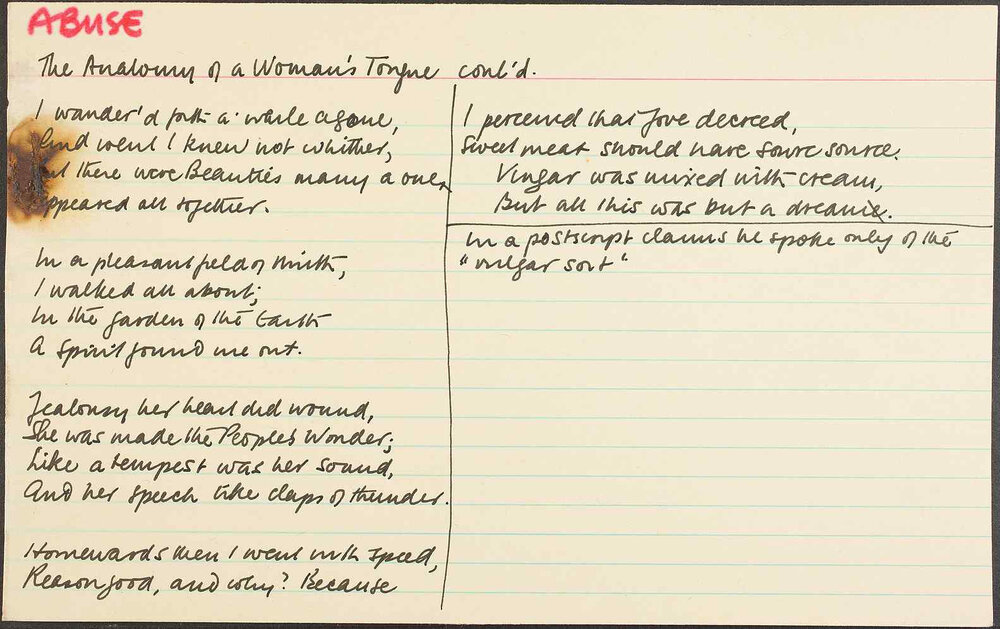 ABUSE
The Anatomy of a Woman's Tongue cont'd.
I wander'd forth a while agone,
And went I knew not whither,
there were Beauties many a one,
appeared all together.
In a pleasant field of mirth,
I walked all about;
In the garden of the Earth
A spirit found me out.
Jealousy her heart did wound,
She was made the People's Wonder;
Like a tempest was her sound,
And her speech like claps of thunder.
Homewards then I went with speed,
Reason good, and why? Because
I perceived that Jove decreed,
Sweet meat should have sowre source.
Vingar was mixed with cream,
But all this was but a dream.
In a postscript claims he spoke only of the
"vulgar sort"